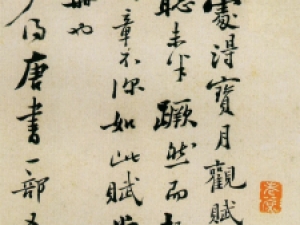 處得寶月觀賦
聽未半蹶然而
章不深如此賦
也
得唐書一部